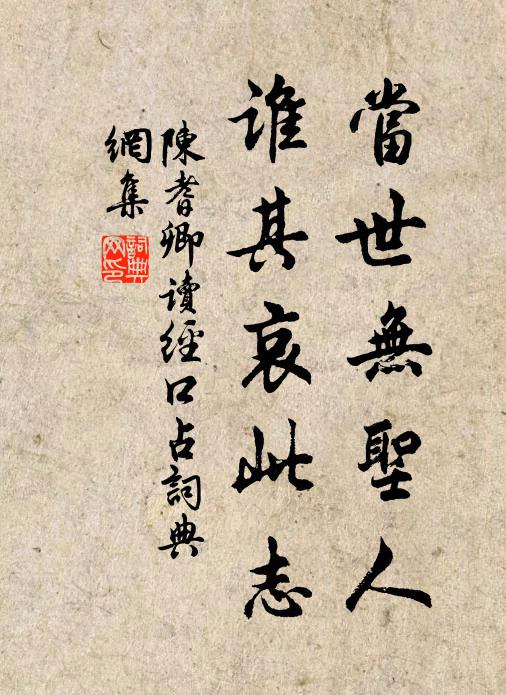 當世無聖人
誰其哀此志
陳耆卿读經口占詞典
網集
詞典
网印